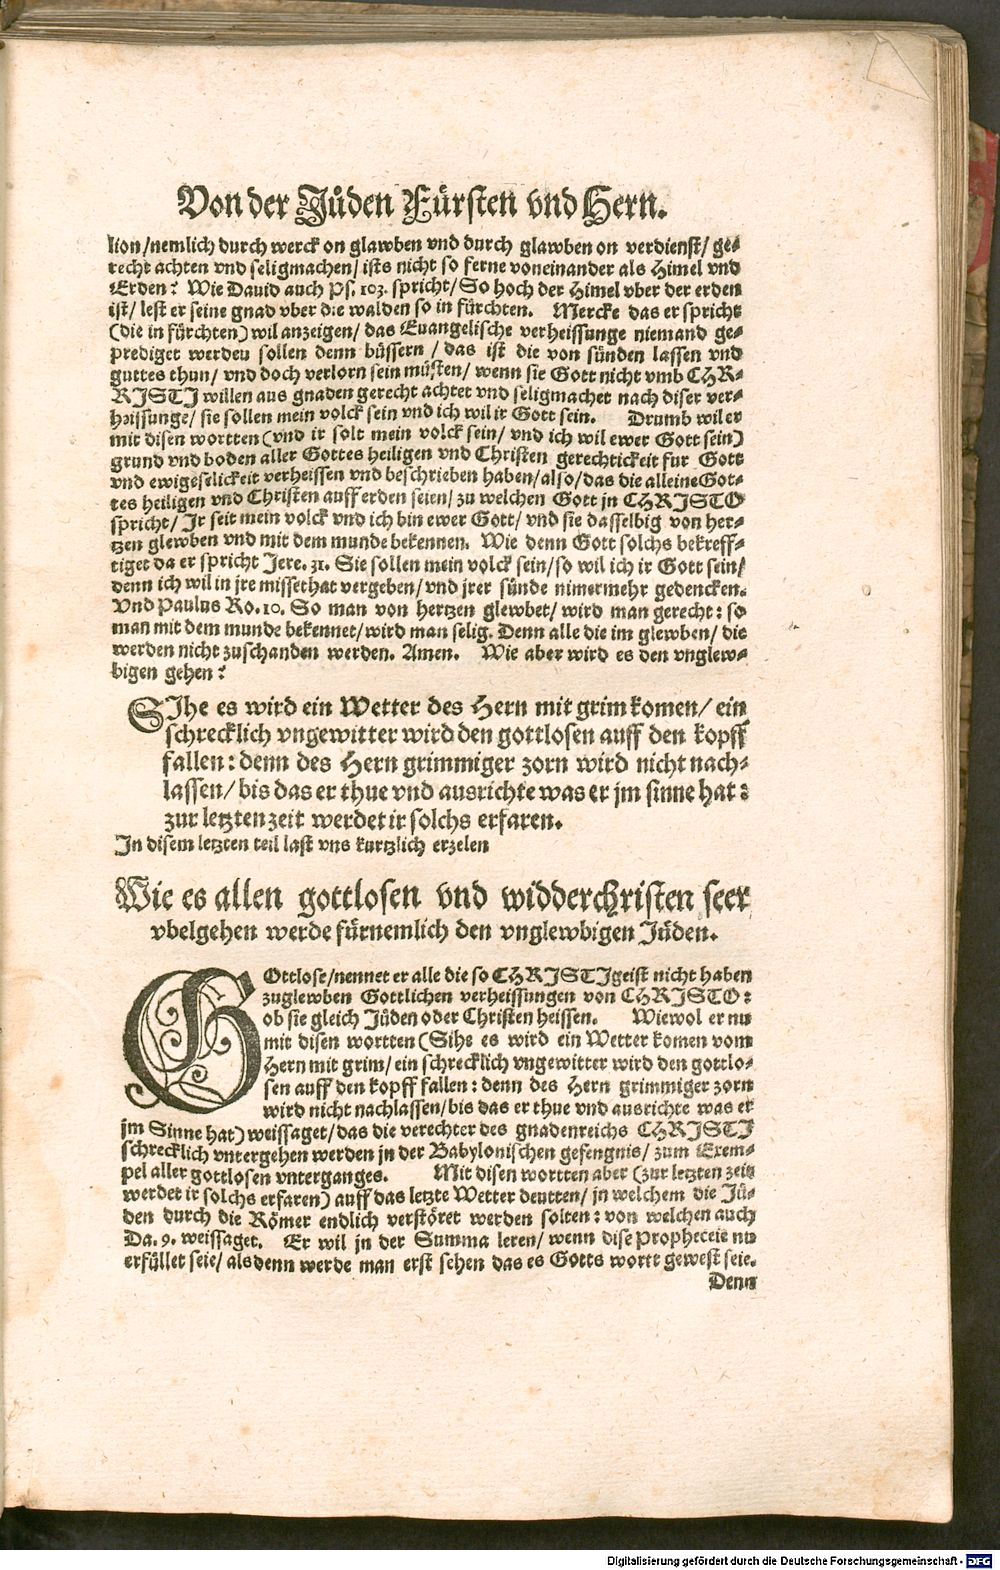 Von der Jüden Fürsten vnd Hern.
lion/nemlich durch werck on glawben vnd durch glawben on verdienst/ ge-
recht achten vnd seligmachen/ ists nicht so ferne voneinander als Himel vnd
Erden? Wie Dauid auch Ps. 103. spricht/ So hoch der Himel vber der erden
ist/ lest er seine gnad vber die walden so in fürchten. Mercke das er spricht
(die in fürchten) wil anzeigen/ das Euangelische verheissunge niemand ge-
prediget werden sollen denn büssern / das ist die von sünden lassen vnd
guttes thun/ vnd doch verlorn sein müsten/ wenn sie Gott nicht vmb CHR-
RJSTJ willen aus gnaden gerecht achtet vnd seligmachet nach diser ver-
heissunge/ sie sollen mein volck sein vnd ich wil ir Gott sein. Drumb wil er
mit disen wortten (vnd ir solt mein volck sein/ vnd ich wil ewer Gott sein)
grund vnd boden aller Gottes heiligen vnd Christen gerechtickeit fur Gott
vnd ewigeselickeit verheissen vnd beschrieben haben/ also/ das die alleine Got-
tes heiligen vnd Christen auff erden seien/ zu welchen Gott jn CHRJSTO
spricht/ Jr seit mein volck vnd ich bin ewer Gott/ vnd sie dasselbig von her-
tzen glewben vnd mit dem munde bekennen. Wie denn Gott solchs bekreff-
tiget da er spricht Jere. 31. Sie sollen mein volck sein/ so wil ich ir Gott sein/
denn ich wil in jre missethat vergeben/ vnd jrer sünde nimermehr gedencken.
Vnd Paulus Ro. 10. So man von hertzen glewbet/ wird man gerecht: so
man mit dem munde bekennet/ wird man selig. Denn alle die im glewben/ die
werden nicht zuschanden werden. Amen. Wie aber wird es den vnglew-
bigen gehen?
SJhe es wird ein Wetter des Hern mit grim komen/ ein
schrecklich vngewitter wird den gottlosen auff den kopff
fallen: denn des Hern grimmiger zorn wird nicht nach-
lassen/ bis das er thue vnd ausrichte was er jm sinne hat:
zur letzten zeit werdet ir solchs erfaren.
Jn disem letzten teil last vns kurtzlich erzelen
Wie es allen gottlosen vnd widderchristen seer
vbelgehen werde fürnemlich den vnglewbigen Jüden.
GOttlose/ nennet er alle die so CHRJSTJ geist nicht haben
zuglewben Gottlichen verheissungen von CHRJSTO:
ob sie gleich Jüden oder Christen heissen. Wiewol er nu
mit disen wortten (Sihe es wird ein Wetter komen vom
Hern mit grim/ ein schrecklich vngewitter wird den gottlo-
sen auff den kopff fallen: denn des Hern grimmiger zorn
wird nicht nachlassen/ bis das er thue vnd ausrichte was er
jm Sinne hat) weissaget/ das die verechter des gnadenreichs CHRJSTJ
schrecklich vntergehen werden jn der Babylonischen gefengnis/ zum Exem-
pel aller gottlosen vnterganges. Mit disen wortten aber (zur letzten zeit
werdet ir solchs erfaren) auff das letzte Wetter deutten/ jn welchem die Jü-
den durch die Römer endlich verstöret werden solten: von welchen auch
Da. 9. weissaget. Er wil jn der Summa leren/ wenn dise Propheceie nu
erfüllet seie/ alsdenn werde man erst sehen das es Gotts wortt gewest seie.
Denn
Digitalisierung gefördert durch die Deutsche Forschungsgemeinschaft - DFG